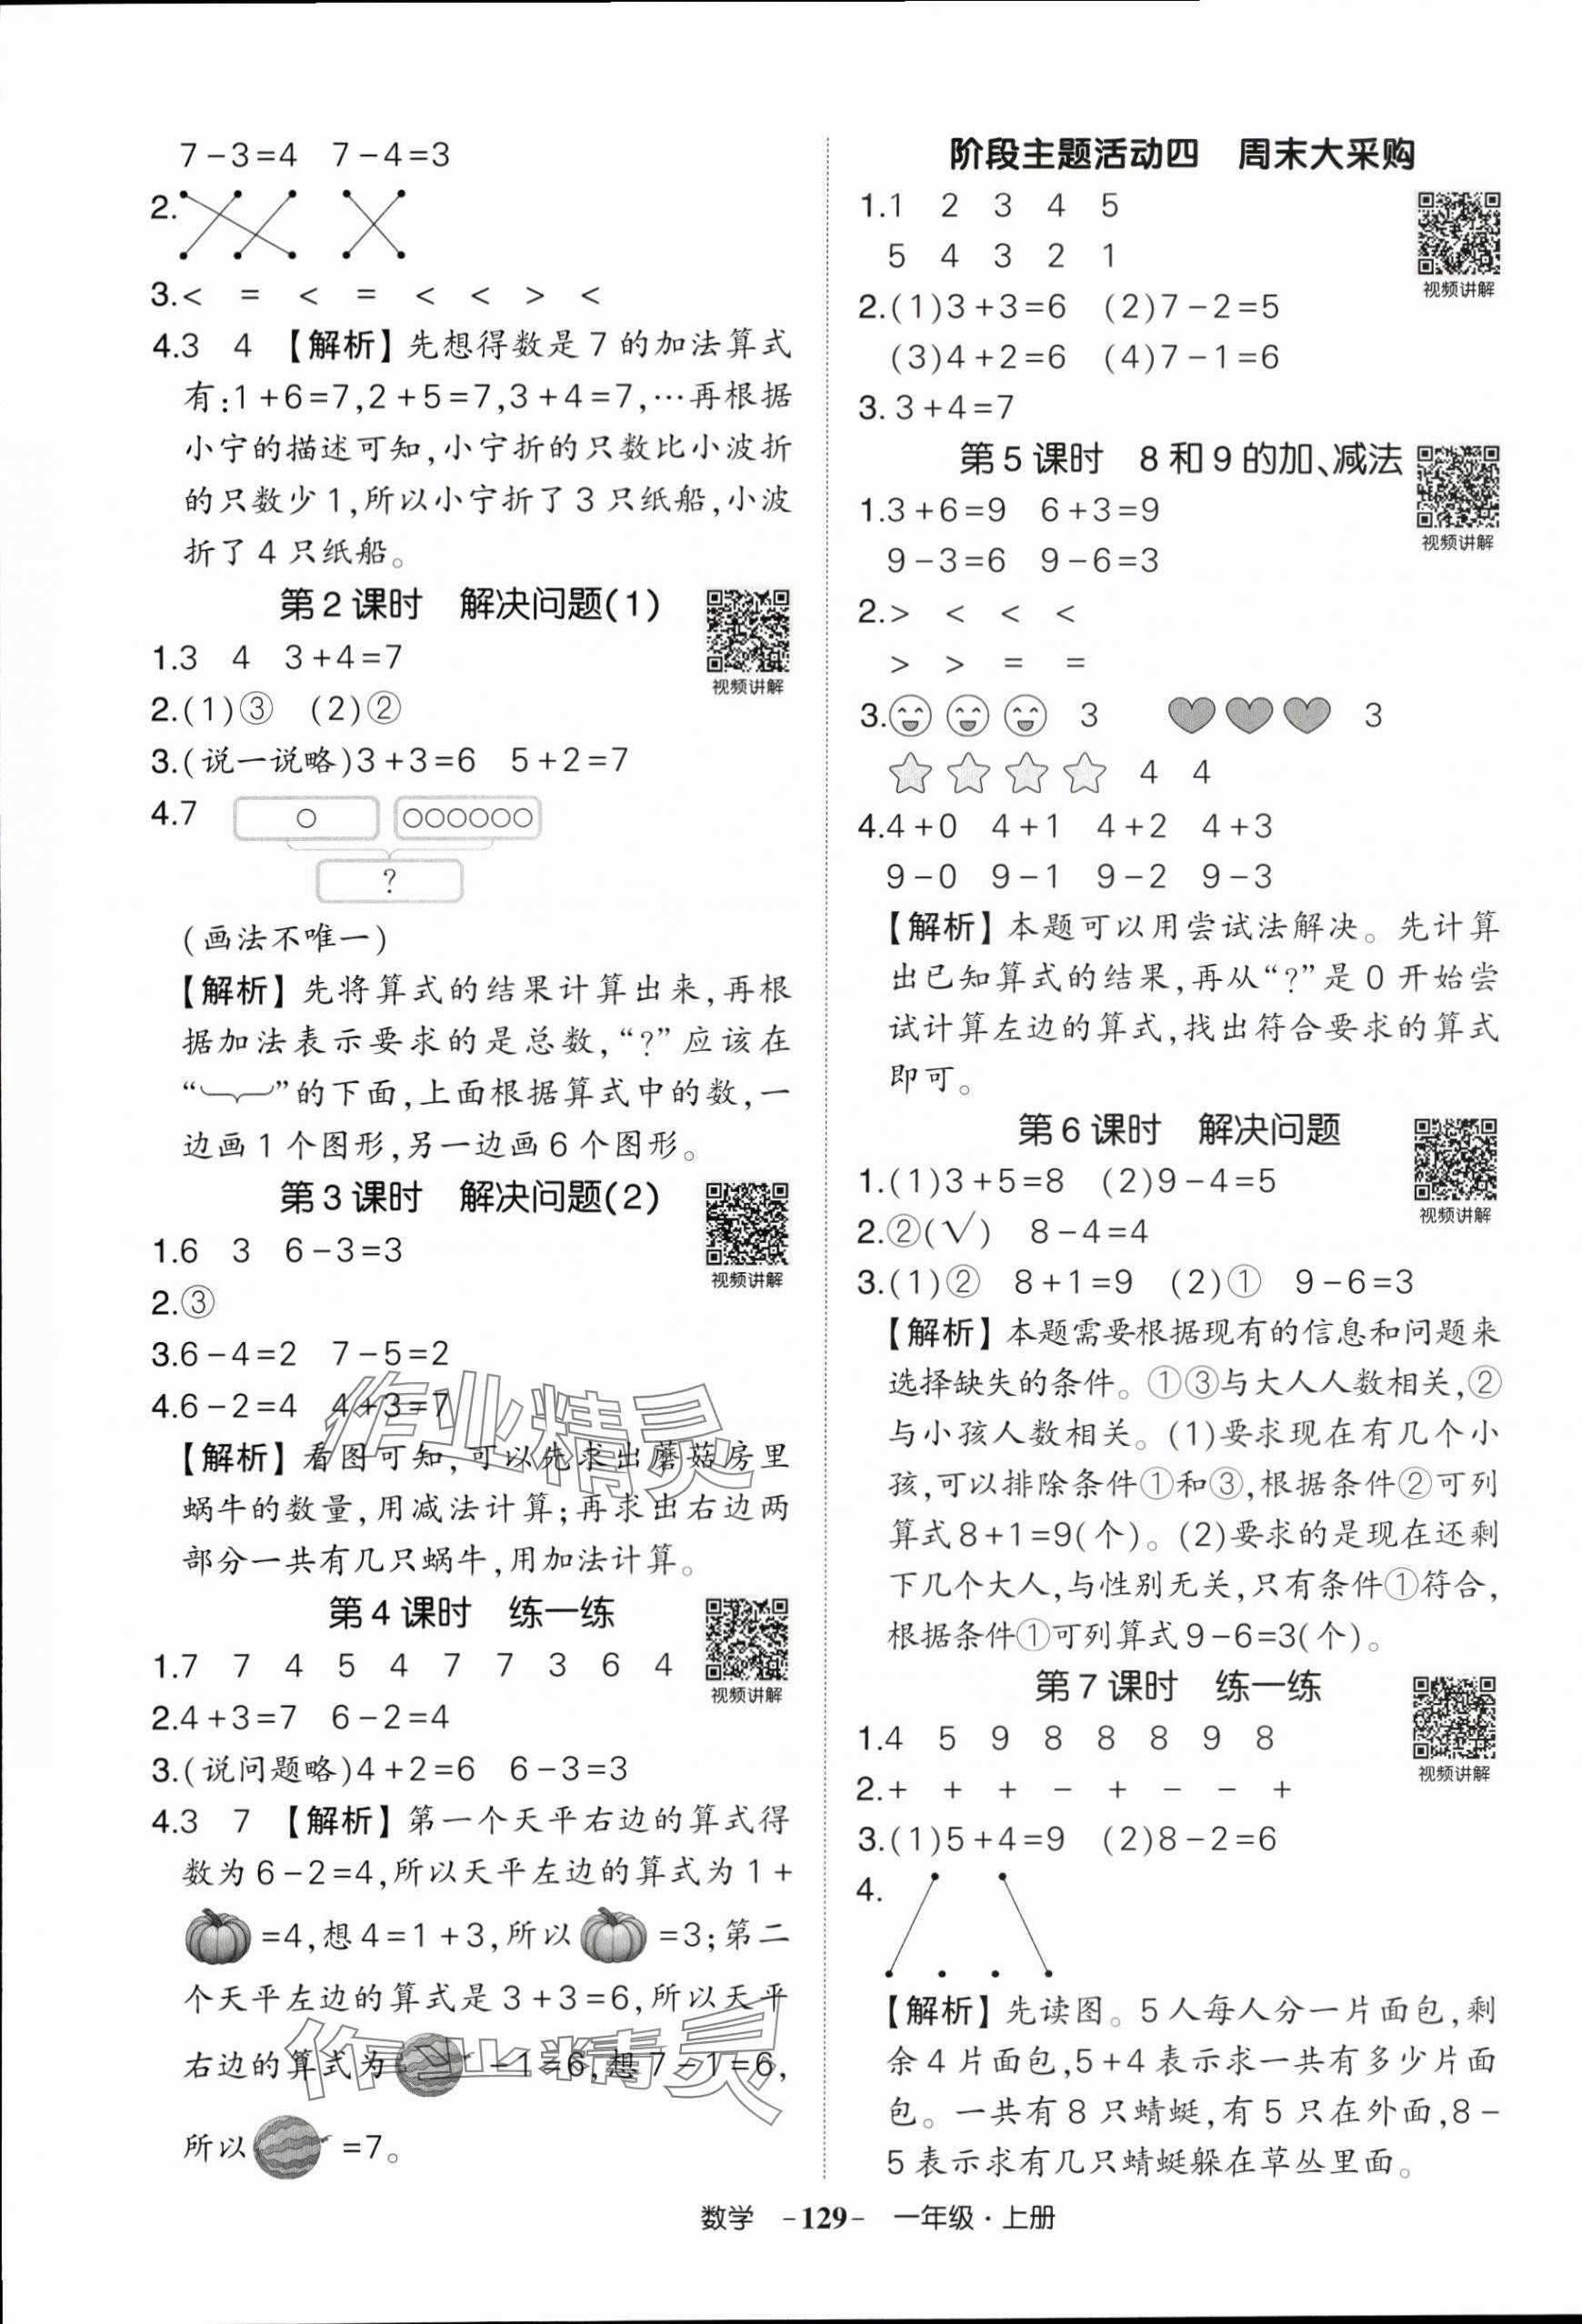 7-3=4 7-4=3
2.
3.< = < = < < > <
4.3 4 【解析】先想得数是7的加法算式
有:1+6=7,2+5=7,3+4=7,…再根据
小宁的描述可知,小宁折的只数比小波折
的只数少1,所以小宁折了3只纸船,小波
折了4只纸船。
第2课时 解决问题(1)
视频讲解
1.3 4 3+4=7
2.(1)③ (2)②
3.(说一说略)3+3=6 5+2=7
4.7
?
(画法不唯一)
【解析】先将算式的结果计算出来,再根
据加法表示要求的是总数,“?”应该在
“﹈”的下面,上面根据算式中的数,一
边画1个图形,另一边画6个图形。
第3课时 解决问题(2)
视频讲解
1.6 3 6-3=3
2.③
3.6-4=2 7-5=2
4.6-2=4 4+3=7
【解析】看图可知,可以先求出蘑菇房里
蜗牛的数量,用减法计算;再求出右边两
部分一共有几只蜗牛,用加法计算。
作业精灵
第4课时 练一练
视频讲解
1.7 7 4 5 4 7 7 3 6 4
2.4+3=7 6-2=4
3.(说问题略)4+2=6 6-3=3
4.3 7 【解析】第一个天平右边的算式得
数为6-2=4,所以天平左边的算式为1+
=4,想4=1+3,所以 =3;第二
个天平左边的算式是3+3=6,所以天平
右边的算式为 -1=6,想7-1=6,
所以 =7。
作业精灵
阶段主题活动四 周末大采购
视频讲解
1.1 2 3 4 5
5 4 3 2 1
2.(1)3+3=6 (2)7-2=5
(3)4+2=6 (4)7-1=6
3.3+4=7
第5课时 8和9的加、减法
视频讲解
1.3+6=9 6+3=9
9-3=6 9-6=3
2.> < < <
> > = =
3. 3 3
4 4
4.4+0 4+1 4+2 4+3
9-0 9-1 9-2 9-3
【解析】本题可以用尝试法解决。先计算
出已知算式的结果,再从“?”是0开始尝
试计算左边的算式,找出符合要求的算式
即可。
第6课时 解决问题
视频讲解
1.(1)3+5=8 (2)9-4=5
2.②(√) 8-4=4
3.(1)② 8+1=9 (2)① 9-6=3
【解析】本题需要根据现有的信息和问题来
选择缺失的条件。①③与大人人数相关,②
与小孩人数相关。(1)要求现在有几个小
孩,可以排除条件①和③,根据条件②可列
算式8+1=9(个)。(2)要求的是现在还剩
下几个大人,与性别无关,只有条件①符合,
根据条件①可列算式9-6=3(个)。
第7课时 练一练
视频讲解
1.4 5 9 8 8 8 9 8
2.+ + + - + - - +
3.(1)5+4=9 (2)8-2=6
4.
【解析】先读图。5人每人分一片面包,剩
余4片面包,5+4表示求一共有多少片面
包。一共有8只蜻蜓,有5只在外面,8-
5表示求有几只蜻蜓躲在草丛里面。
数学 -129- 一年级·上册